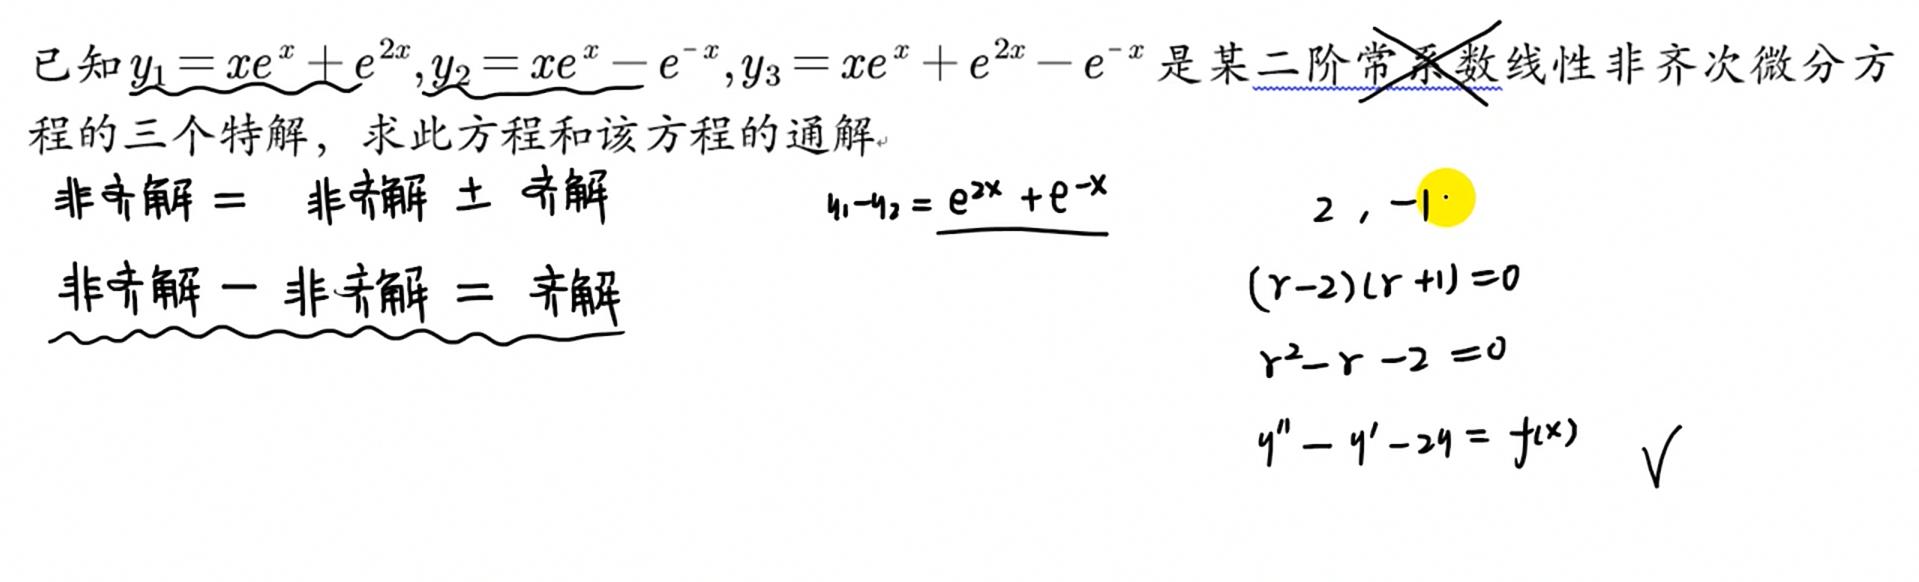 已知y₁=xeˣ+e²ˣ,y₂=xeˣ-e⁻ˣ,y₃=xeˣ+e²ˣ-e⁻ˣ是某二阶常系数线性非齐次微分方
程的三个特解，求此方程和该方程的通解
非齐解 = 非齐解 ± 齐解
y₁-y₂ = e²ˣ+e⁻ˣ
2 , -1
非齐解 - 非齐解 = 齐解
(r-2)(r+1)=0
r²-r-2=0
y''-y'-2y=f(x)